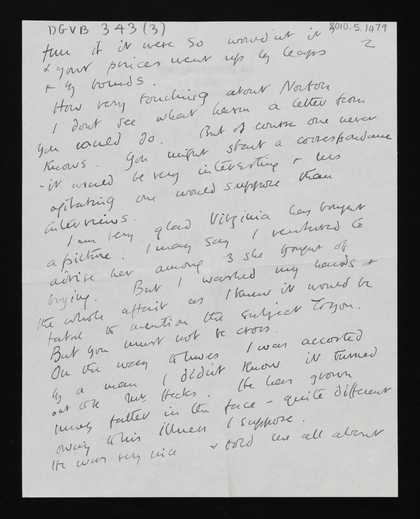 DGVB 343 (3)
8010.5.1079
2
fun if it were so wouldn't it?
& your prices went up by leaps
& by bounds.
How very touching about Norton
I dont see what harm a letter from
you could do. But of course one never
knows. You might start a correspondence
- it would be very interesting & less
agitating one would suppose than
interviews.
I am very glad Virginia has bought
a picture. I may say I ventured to
advise her among 3 she thought of
buying. But I washed my hands of
the whole affair as I knew it would be
fatal to mention the subject to you.
But you must not be cross.
On the way I was accosted
by a man I didn't know it turned
out to be Mr Hecks. He has grown
much fatter in the face - quite different
owing to his illness I suppose.
He was very nice & told me all about